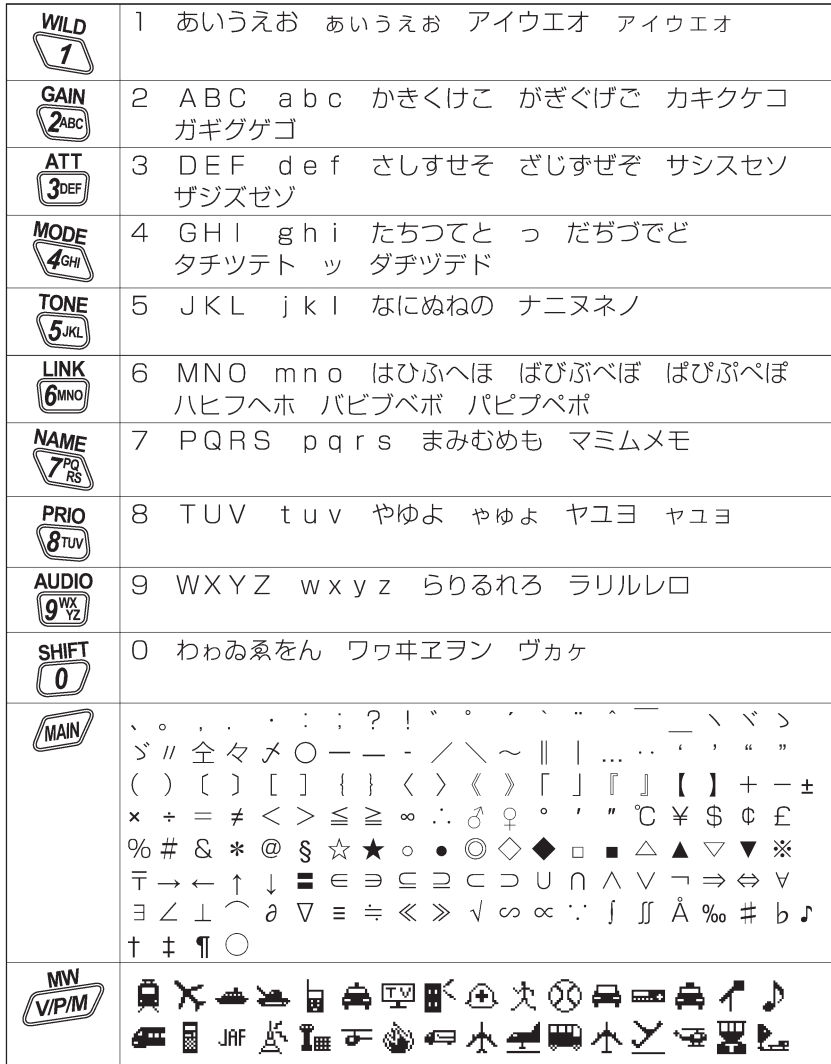 WILD
1
1 あいうえお ぁぃぅぇぉ アイウエオ ァィゥェォ
GAIN
2ABC
2 ABC abc かきくけこ がぎぐげご カキクケコ
ガギグゲゴ
ATT
3DEF
3 DEF def さしすせそ ざじずぜぞ サシスセソ
ザジズゼゾ
MODE
4GHI
4 GHI ghi たちつてと っ だぢづでど
タチツテト ッ ダヂヅデド
TONE
5JKL
5 JKL jkl なにぬねの ナニヌネノ
LINK
6MNO
6 MNO mno はひふへほ ばびぶべぼ ぱぴぷぺぽ
ハヒフヘホ バビブベボ パピプペポ
NAME
7PQRS
7 PQRS pqrs まみむめも マミムメモ
PRIO
8TUV
8 TUV tuv やゆよ ゃゅょ ヤユヨ ャュョ
AUDIO
9WXYZ
9 WXYZ wxyz らりるれろ ラリルレロ
SHIFT
0
0 わゎゐゑをん ワヮヰヱヲン ヴヵヶ
MAIN
、 。 , . ・ : ; ? ! ゛ ゜ ´ ｀ ¨ ＾ ￣ ＿ ヽ ヾ ゝ
ゞ 〃 仝 々 〆 〇 ー ― ‐ ／ ＼ ～ ∥ ｜ … ‥ ‘ ’ “ ”
( ) 〔 〕 [ ] { } 〈 〉 《 》 「 」 『 』 【 】 ＋ － ±
× ÷ ＝ ≠ ＜ ＞ ≦ ≧ ∞ ∴ ♂ ♀ ° ′ ″ ℃ ¥ $ ¢ £
% # & * @ § ☆ ★ ○ ● ◎ ◇ ◆ □ ■ △ ▲ ▽ ▼ ※
〒 → ← ↑ ↓ 〓 ∈ ∋ ⊆ ⊇ ⊂ ⊃ ∪ ∩ ∧ ∨ ¬ ⇒ ⇔ ∀
∃ ∠ ⊥ ⌒ ∂ ∇ ≡ ≒ ≪ ≫ √ ∽ ∝ ∵ ∫ ∬ Å ‰ ♯ ♭ ♪
† ‡ ¶ ◯
MW
V/P/M
TV
JAF